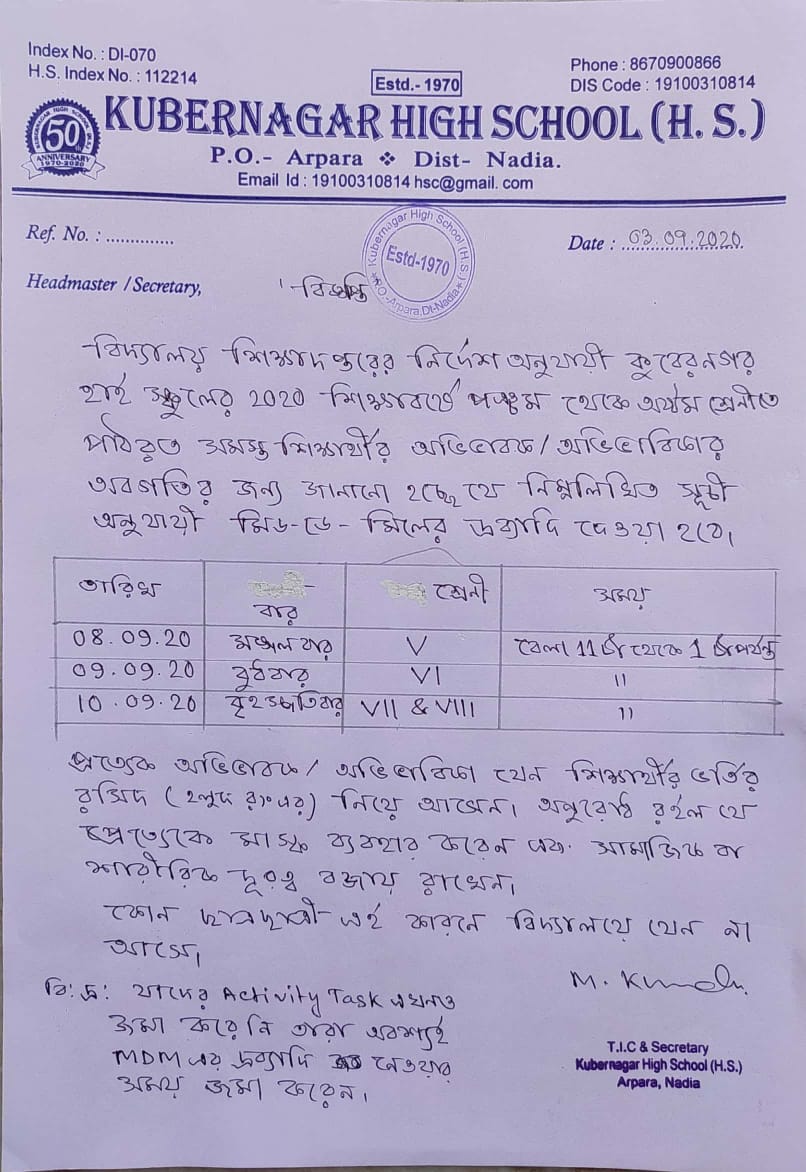 Index No. : DI-070
H.S. Index No. : 112214
Phone : 8670900866
DIS Code : 19100310814
Estd.- 1970
KUBERNAGAR HIGH SCHOOL (H. S.)
KUBERNAGAR HIGH SCHOOL
50
ANNIVERSARY
1970-2020
P.O.- Arpara ❖ Dist- Nadia.
Email Id : 19100310814 hsc@gmail. com
Ref. No. : ..............
Date : 03.09.2020
Kubernagar High School (H.S.)
Estd-1970
P.O.-Arpara, Dt-Nadia
Headmaster / Secretary,
বিজ্ঞপ্তি
বিদ্যালয় শিক্ষাদপ্তরের নির্দেশ অনুযায়ী কুবেরনগর
হাই স্কুলের 2020 শিক্ষাবর্ষে পঞ্চম থেকে অষ্টম শ্রেনীতে
পাঠরত সমস্ত শিক্ষার্থীর অভিভাবক / অভিভাবিকার
অবগতির জন্য জানানো হচ্ছে যে নিম্নলিখিত সূচী
অনুযায়ী মিড-ডে-মিলের দ্রব্যাদি দেওয়া হবে।
তারিখ বার শ্রেনী সময়
08.09.20 মঙ্গলবার V বেলা 11 টা থেকে 1 টা পর্যন্ত
09.09.20 বুধবার VI "
10.09.20 বৃহস্পতিবার VII & VIII "
প্রত্যেক অভিভাবক / অভিভাবিকা যেন শিক্ষার্থীর ভর্তির
রসিদ (হলুদ রংএর) নিয়ে আসেন। অনুরোধ রইল যে
প্রত্যেকে মাস্ক ব্যবহার করেন এবং সামাজিক বা
শারীরিক দূরত্ব বজায় রাখেন।
কোন ছাত্রছাত্রী এই কারনে বিদ্যালয়ে যেন না
আসে।
M. Kundu.
বি: দ্র: যাদের Activity Task এখনও
জমা করেনি তারা অবশ্যই
MDM এর দ্রব্যাদি নেওয়ার
সময় জমা করেন।
T.I.C & Secretary
Kubernagar High School (H.S.)
Arpara, Nadia